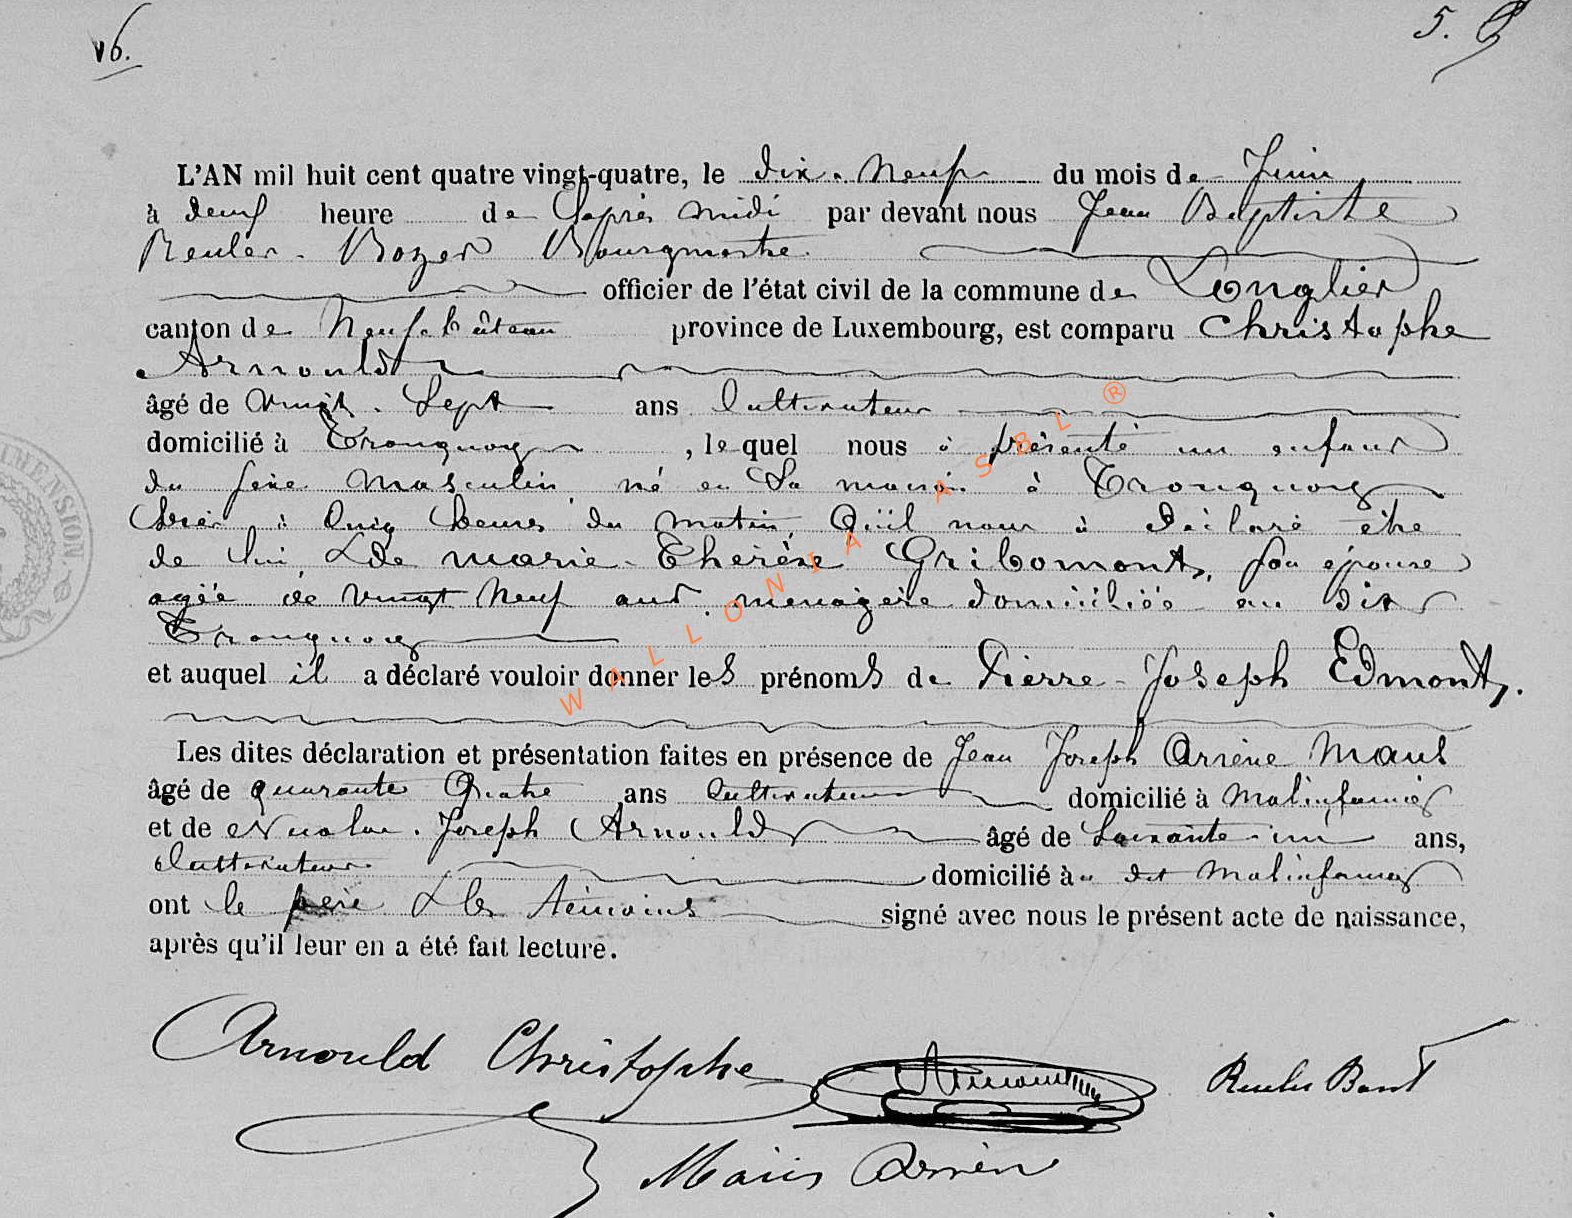 v6. 5.
L'AN mil huit cent quatre vingt-quatre, le dix-Neuf du mois de Juin
à deux heure de l'après midi par devant nous Jean Baptiste
Reuler-Bozer Bourgmestre
officier de l'état civil de la commune de Longlier
canton de Neufchâteau province de Luxembourg, est comparu Christophe
Arnould
âgé de vingt-Sept ans Cultivateur
domicilié à Tronquoy, lequel nous à présenté un enfant
du sexe Masculin né en Sa maison à Tronquoy
hier à onze heures du matin Qu'il nous à déclaré être
de lui & de marie-Therèse Gribomont, son épouse
agée de vingt Neuf ans menagère domiciliée au dit
Tronquoy
et auquel il a déclaré vouloir donner les prénoms de Pierre-Joseph Edmont,.
Les dites déclaration et présentation faites en présence de Jean Joseph Arsène Maus
âgé de quarante Quatre ans Cultivateur domicilié à Molinfaing
et de Nicolas-Joseph Arnould âgé de Soixante-un ans,
Cultivateur domicilié à dit Molinfaing
ont le père & les témoins signé avec nous le présent acte de naissance,
après qu'il leur en a été fait lecture.
Arnould Christophe
Arsèn
WALLONIA ASBL ®
HENSION.